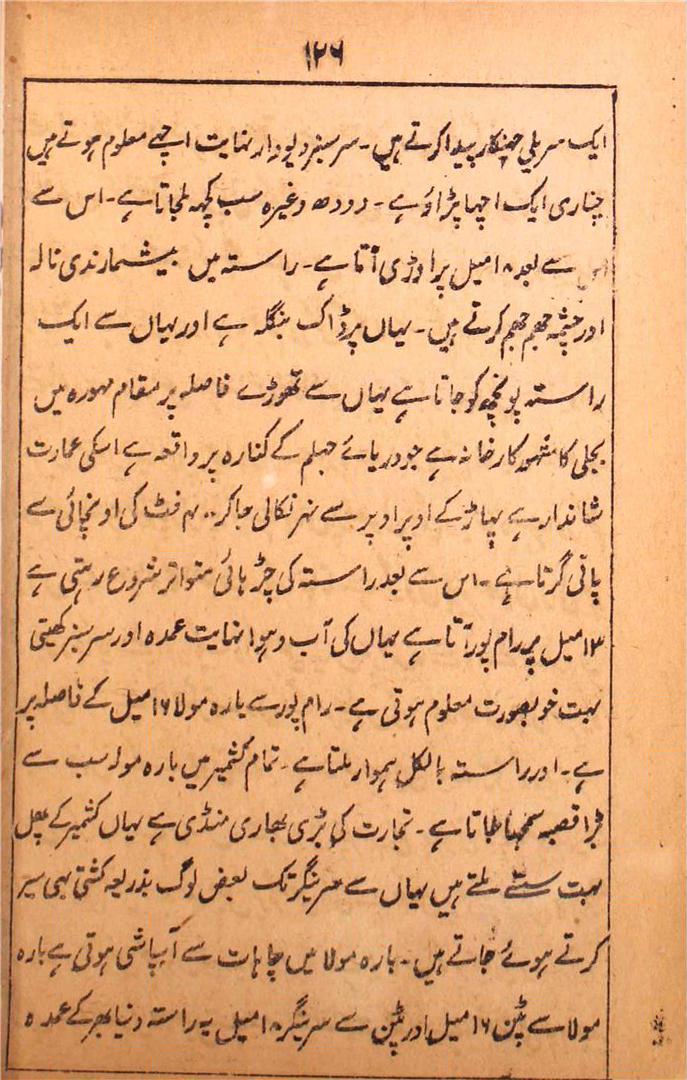 ۱۲۶
ایک سریلی جھنکار پیدا کرتے ہیں۔ سرسبز دیودار نہایت اچھے معلوم ہوتے ہیں
چناری ایک اچھا پڑاؤ ہے۔ دودھ وغیرہ سب کچھ ملجاتا ہے۔ اس سے
اس سے بعد ۱۸ میل پر اوڑی آتا ہے۔ راستہ میں بیشمار ندی نالہ
اور چشمہ جھم جھم کرتے ہیں۔ یہاں پر ڈاک بنگلہ ہے اور یہاں سے ایک
راستہ پونچھ کو جاتا ہے یہاں سے تھوڑے فاصلہ پر مقام مہورہ میں
بجلی کا مشہور کارخانہ ہے جو دریائے جہلم کے کنارہ پر واقعہ ہے اسکی عمارت
شاندار ہے پہاڑ کے اوپر اوپر سے نہر نکالی جاکر ۴۰۰ فٹ کی اونچائی سے
پانی گرتا ہے۔ اس سے بعد راستہ کی چڑہائی متواتر شروع رہتی ہے
۱۳ میل پر رام پور آتا ہے یہاں کی آب و ہوا نہایت عمدہ اور سرسبز کھیتی
بہت خوبصورت معلوم ہوتی ہے۔ رام پور سے بارہ مولا ۱۶ میل کے فاصلہ پر
ہے۔ اور راستہ بالکل ہموار ملتا ہے۔ تمام کشمیر میں بارہ مولہ سب سے
بڑا قصبہ سمجھا جاتا ہے۔ تجارت کی بڑی بھاری منڈی ہے یہاں کشمیر کے پھل
بہت سستے ملتے ہیں یہاں سے سرینگر تک بعض لوگ بذریعہ کشتی بھی سیر
کرتے ہوئے جاتے ہیں۔ بارہ مولا میں چاہات سے آبپاشی ہوتی ہے بارہ
مولا سے پٹن ۱۶ میل اور پٹن سے سرینگر ۱۸ میل یہ راستہ دنیا بھر کے عمدہ